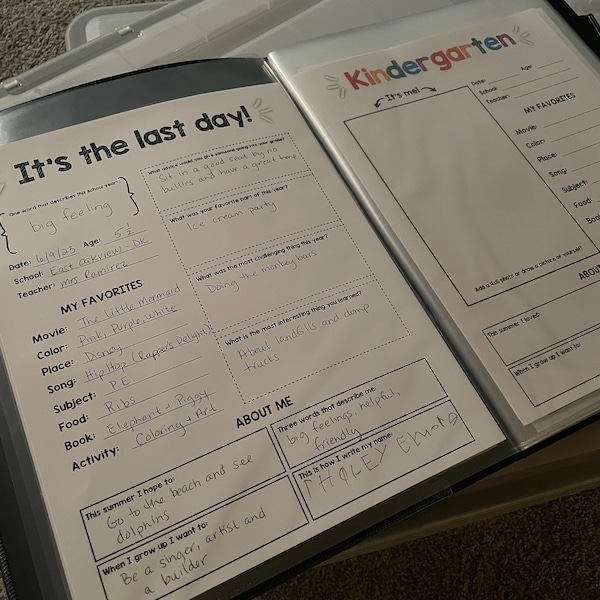 It's the last day!
One word that describes this school year:
big feeling
Date: 6/9/23 Age: 5 1/2
School: East Oakview - DK
Teacher: Mrs. Ramirez
MY FAVORITES
Movie: The Little Mermaid
Color: Pink, Purple, White
Place: Disney
Song: Hip Hop (Rapper's Delight)
Subject: P.E
Food: Ribs
Book: Elephant + Piggy
Activity: Coloring + Art
What advice would you give someone going into your grade?
Sit in a good seat by no
bullies and have a great time
What was your favorite part of this year?
Ice cream party
What was the most challenging thing this year?
Doing the monkey bars
What is the most interesting thing you learned?
About landfills and dump
trucks
ABOUT ME
This summer I hope to:
Go to the beach and see
dolphins
Three words that describe me:
big feelings, helpful,
friendly
When I grow up I want to:
Be a singer, artist and
a builder
This is how I write my name:
Kindergarten
It's me!
Date: Age:
School:
Teacher:
MY FAVORITES
Movie:
Color:
Place:
Song:
Subject:
Food:
Book:
Add a last photo or draw a picture of yourself!
ABOUT
This summer I loved:
When I grow up I want to: